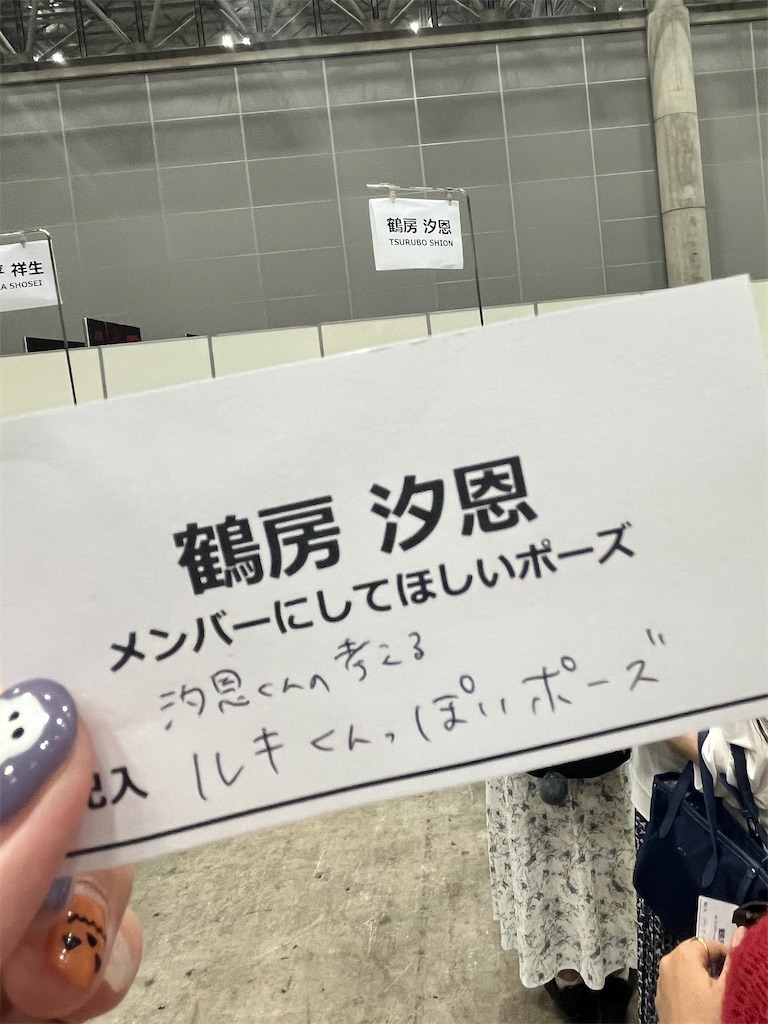 鶴房 汐恩
TSURUBO SHION
祥生
A SHOSEI
鶴房 汐恩
メンバーにしてほしいポーズ
汐恩くんの考える
ルキくんっぽいポーズ
記入